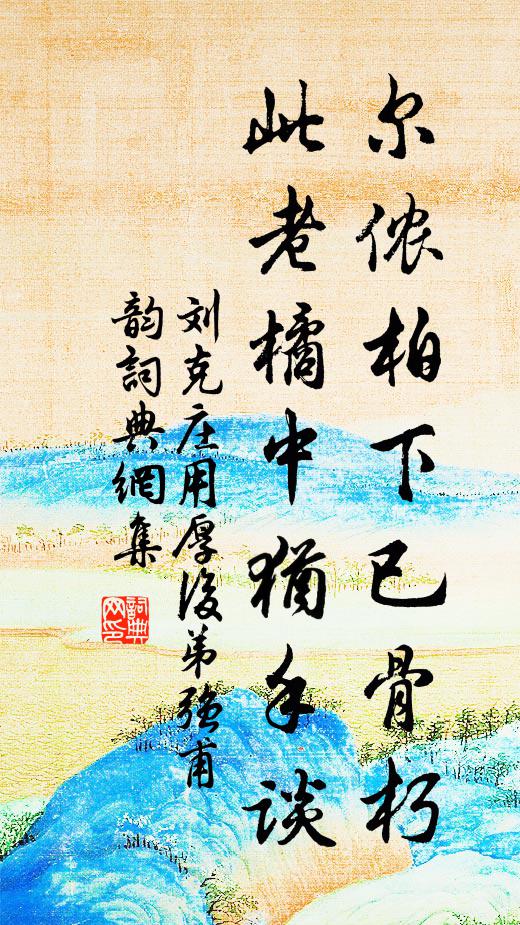 尔侬柏下已骨朽
此老橘中犹手谈
刘克庄用厚後弟强甫
韵詞典網集
詞典
网印